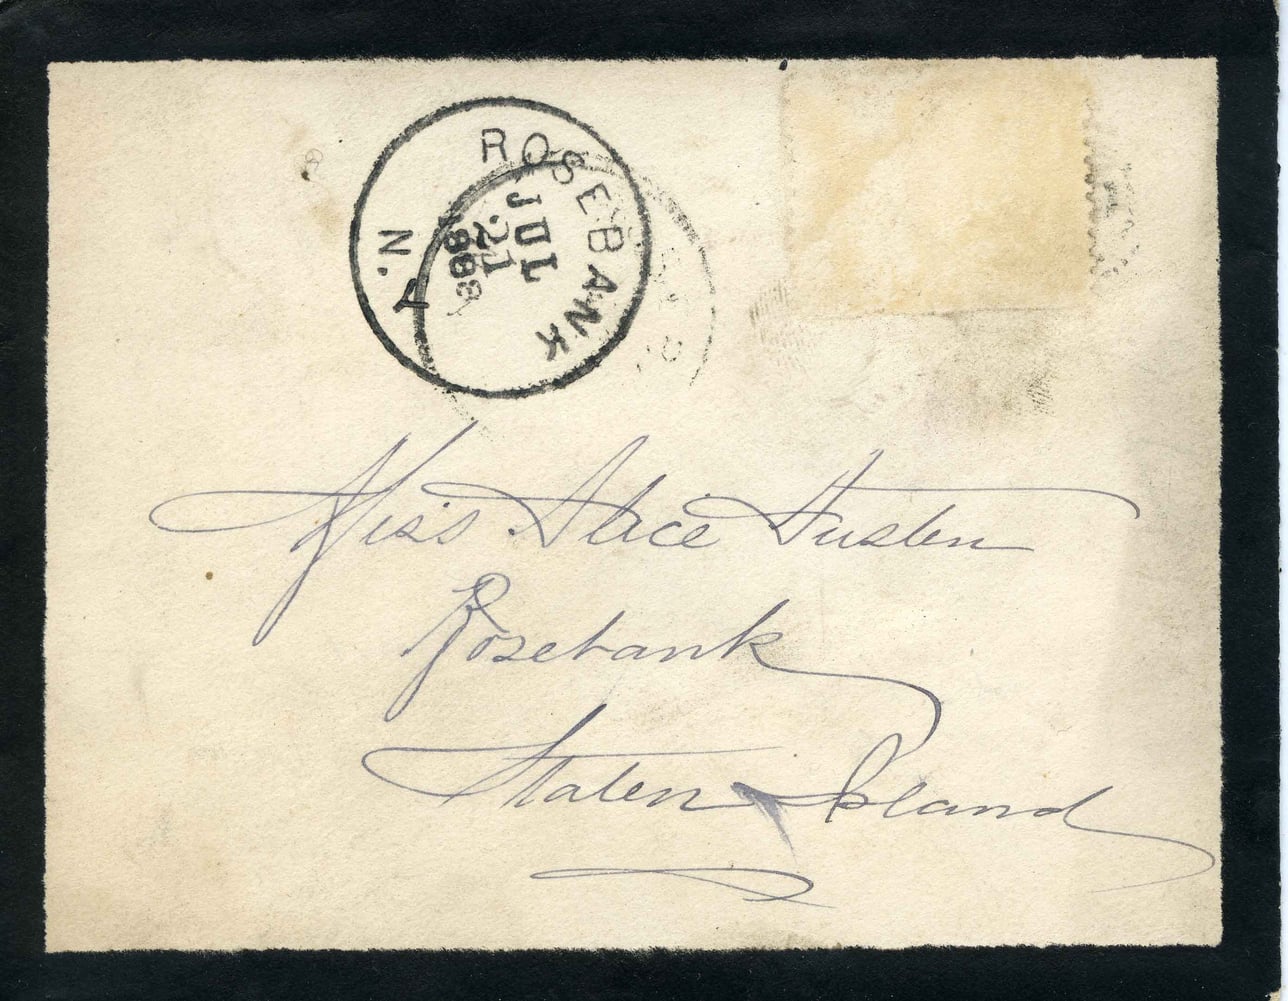 ROSEBANK
JUL
21
1888
N.Y.
Miss Alice Austen
Rosebank
Staten Island